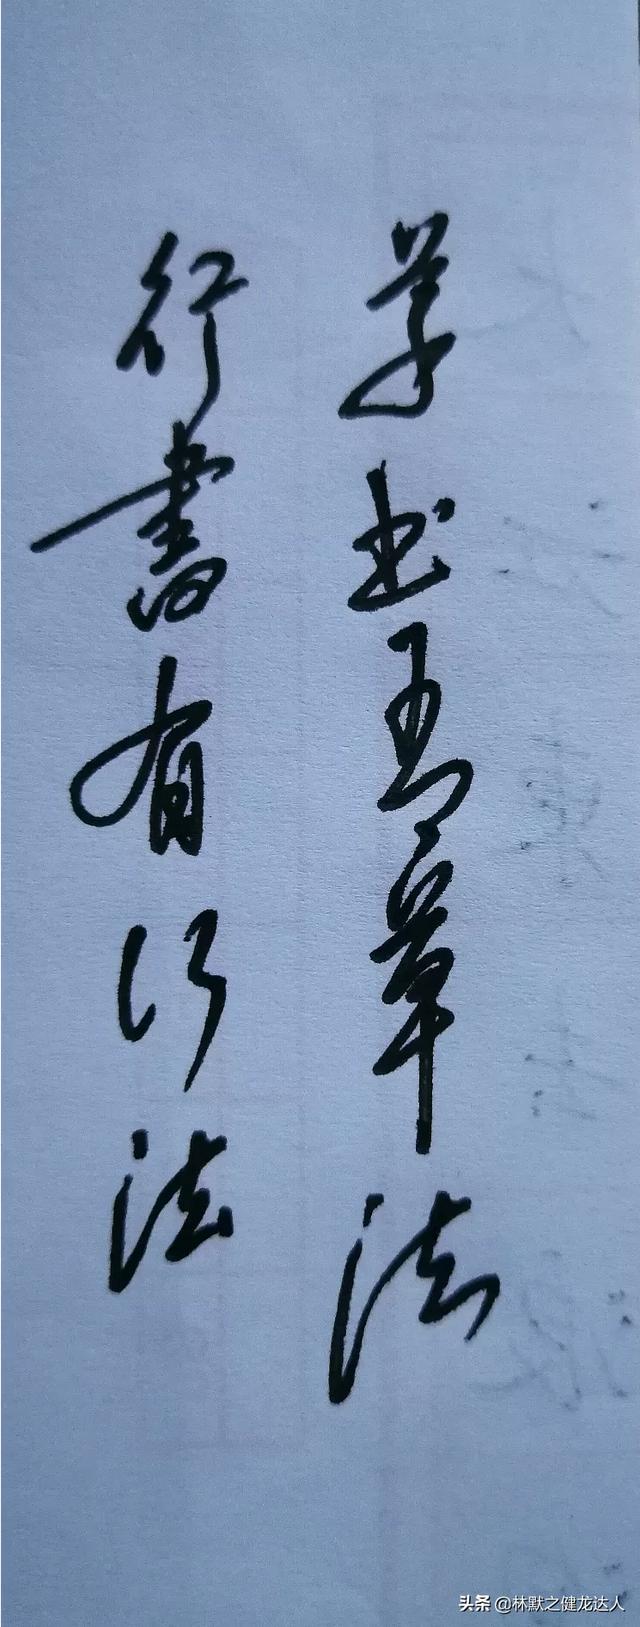 学书章法
行書有行法
头条 @林默之健龙达人